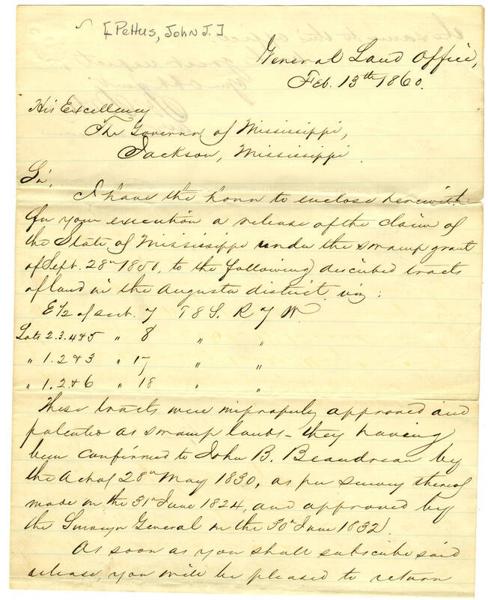 [Pettus, John J.]
General Land Office,
Feb. 13th 1860.
His Excellency
The Governor of Mississippi,
Jackson, Mississippi.
Sir,
I have the honor to enclose herewith
for your execution a release of the claim of
the State of Mississippi under the swamp grant
of Sept. 28th 1850, to the following discribed tracts
of land in the Augusta district viz:
E 1/2 of sect. 7 T 8 S. R 7 W.
Lots 2.3.4&5 " 8 " "
" 1.2&3 " 17 " "
" 1.2&6 " 18 " "
These tracts were improperly approved and
patented as swamp lands - they having
been confirmed to John B. Beaudreau by
the Act of 28th May 1830, as per survey thereof
made on the 31st June 1824, and approved by
the Surveyor General on the 30th June 1832.
As soon as you shall subscribe said
release, you will be pleased to return